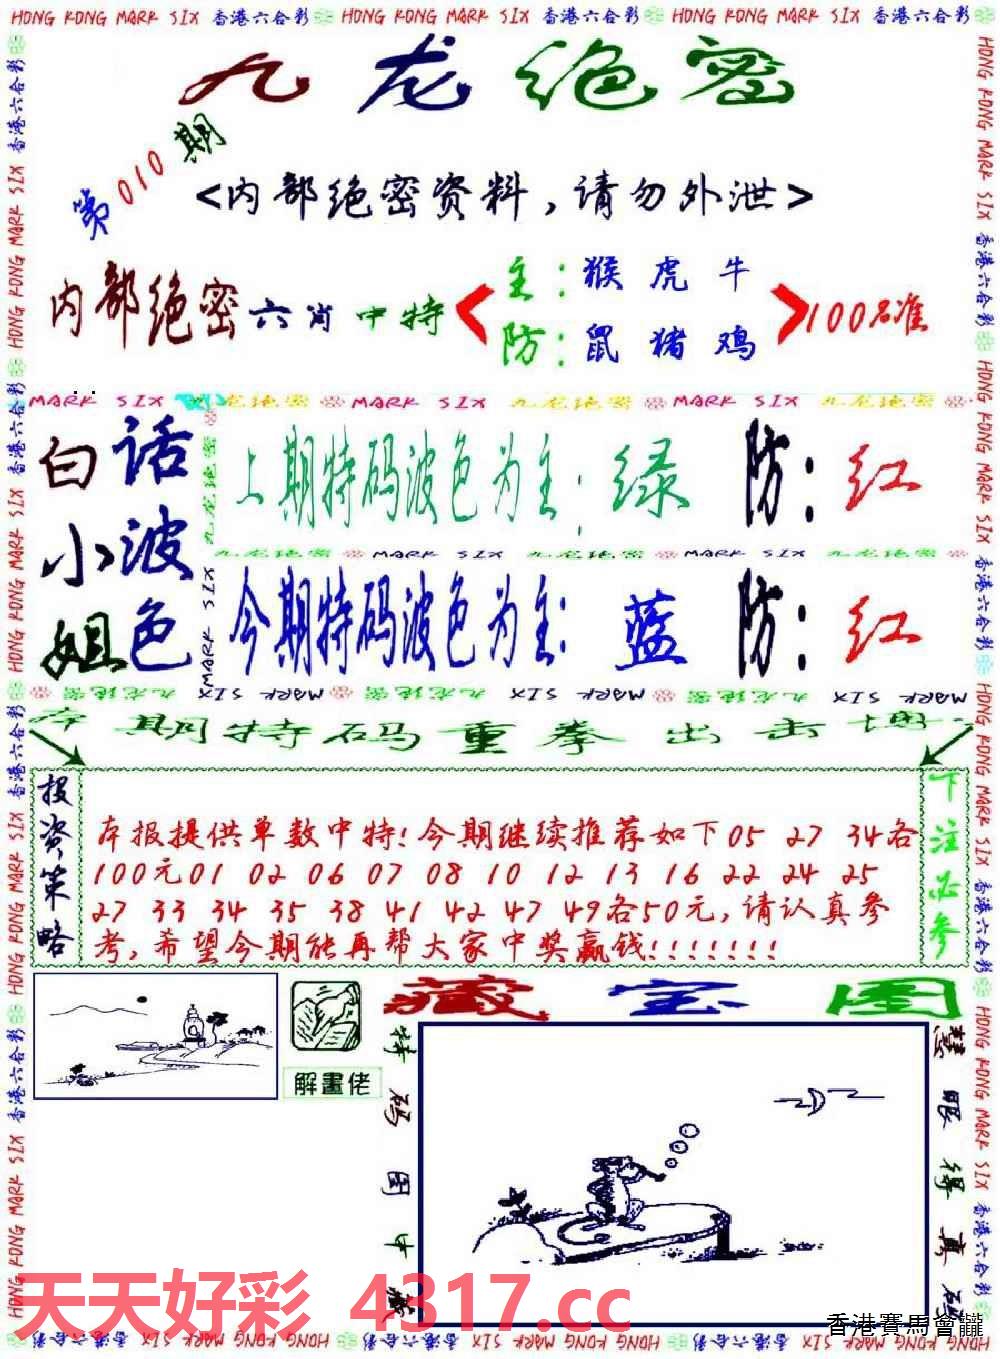 HONG KONG MARK SIX 香港六合彩 HONG KONG MARK SIX 香港六合彩 HONG KONG MARK SIX 香港六合彩
九龙绝密
第010期
<内部绝密资料,请勿外泄>
内部绝密六肖中特
主:猴 虎 牛
防:鼠 猪 鸡
100%准
MARK SIX 九龙绝密 MARK SIX 九龙绝密 MARK SIX 九龙绝密
白小姐
话波色
上期特码波色为主:绿 防:红
九龙绝密 MARK SIX 九龙绝密 MARK SIX 九龙绝密
今期特码波色为主:蓝 防:红
本期特码重拳出击
投资策略
本报提供单数中特!今期继续推荐如下05 27 34各
100元01 02 06 07 08 10 12 13 16 22 24 25
27 33 34 35 38 41 42 47 49各50元,请认真参
考,希望今期能再帮大家中奖赢钱!!!!!!!
下注必参
解畫佬
藏宝图
特码图中藏
慧眼得真码
天天好彩 4317.cc
香港賽馬會